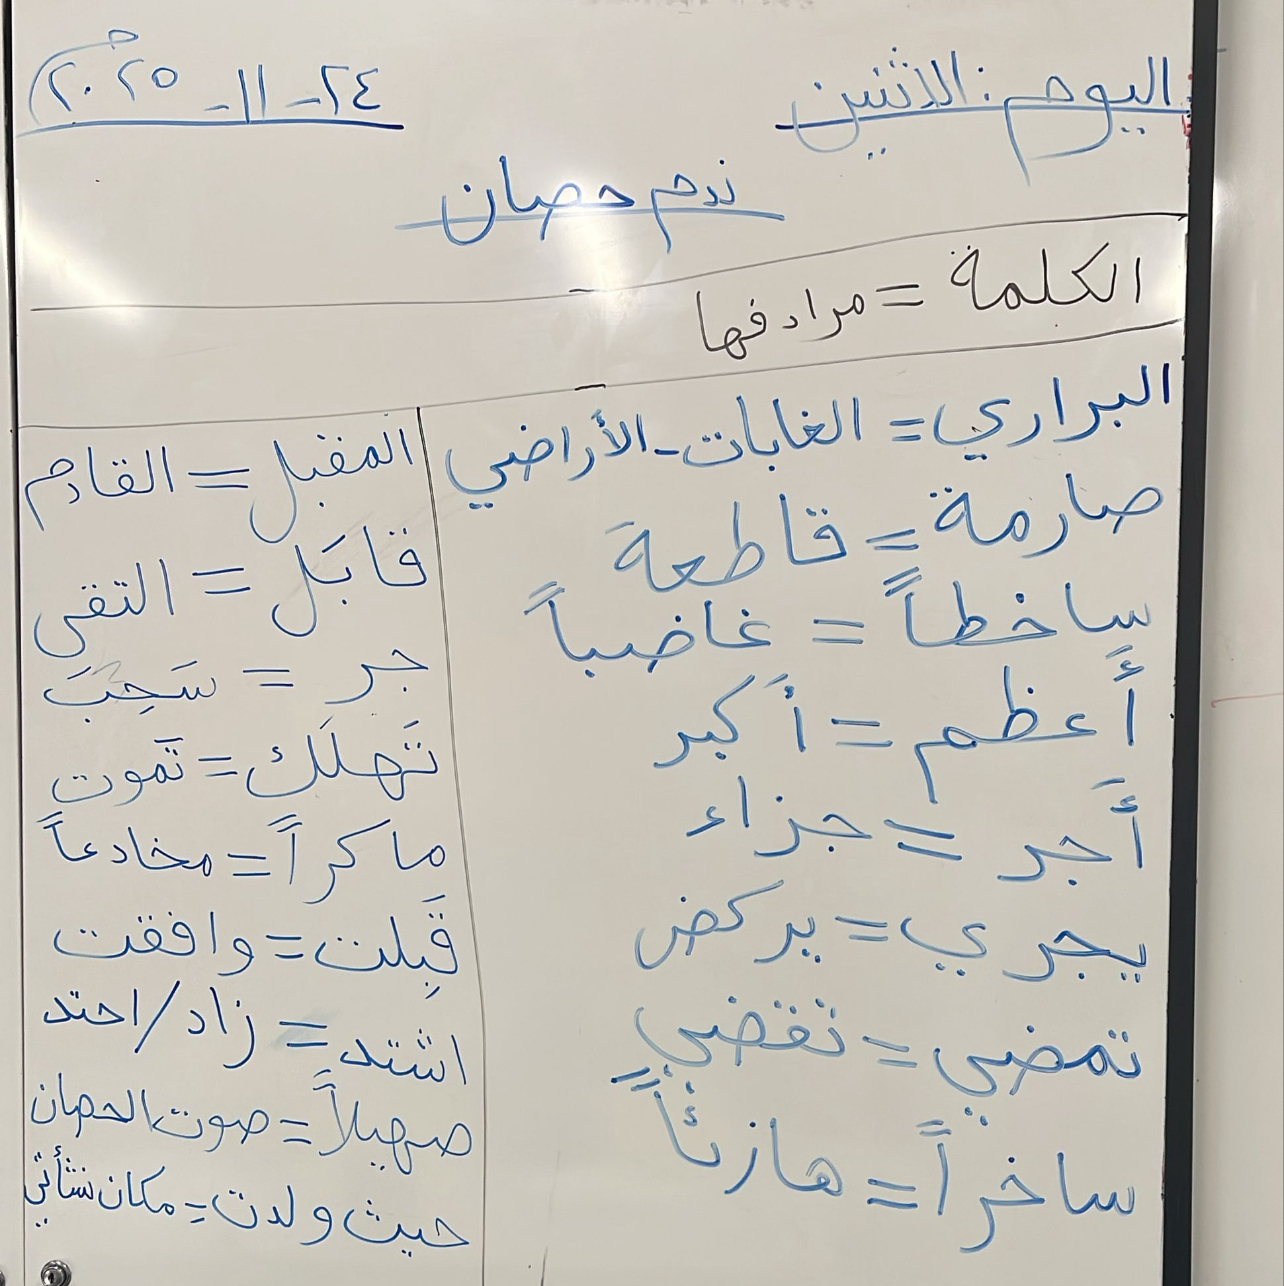 اليوم : الاثنين
٢٤-١١-٢٠٢٥م
ندم حصان
الكلمة = مرادفها
البراري = الغابات - الأراضي
صارمة = قاطعة
ساخطاً = غاضباً
أَعظم = أَكبر
أَجر = جزاء
يجري = يركض
تمضي = تقضي
ساخراً = هازئاً
المقبل = القادم
قابَل = التقى
جر = سَحِبَ
تَهلَك = تَموت
ماكراً = مخادعاً
قَبِلت = وافقت
اشتد = زاد/احتد
صهيلاً = صوت الحصان
حيث ولدت = مكان نشأتي